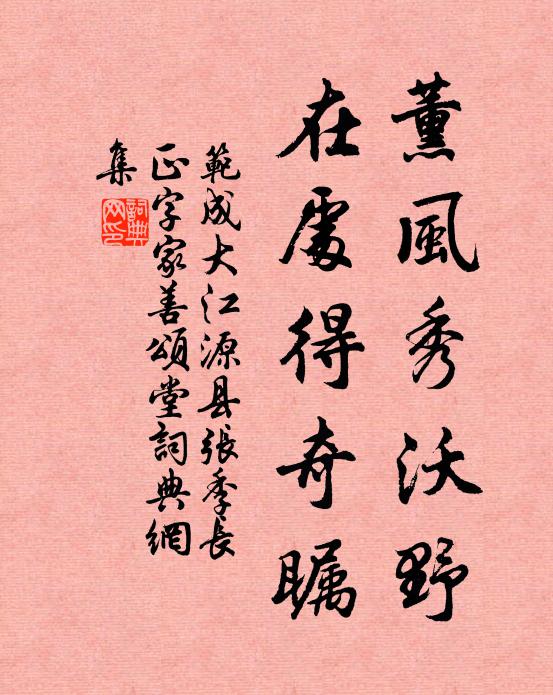 薰風秀沃野
在處得奇矚
範成大江源县張季長
正字家善頌堂詞典網
集
詞典網印